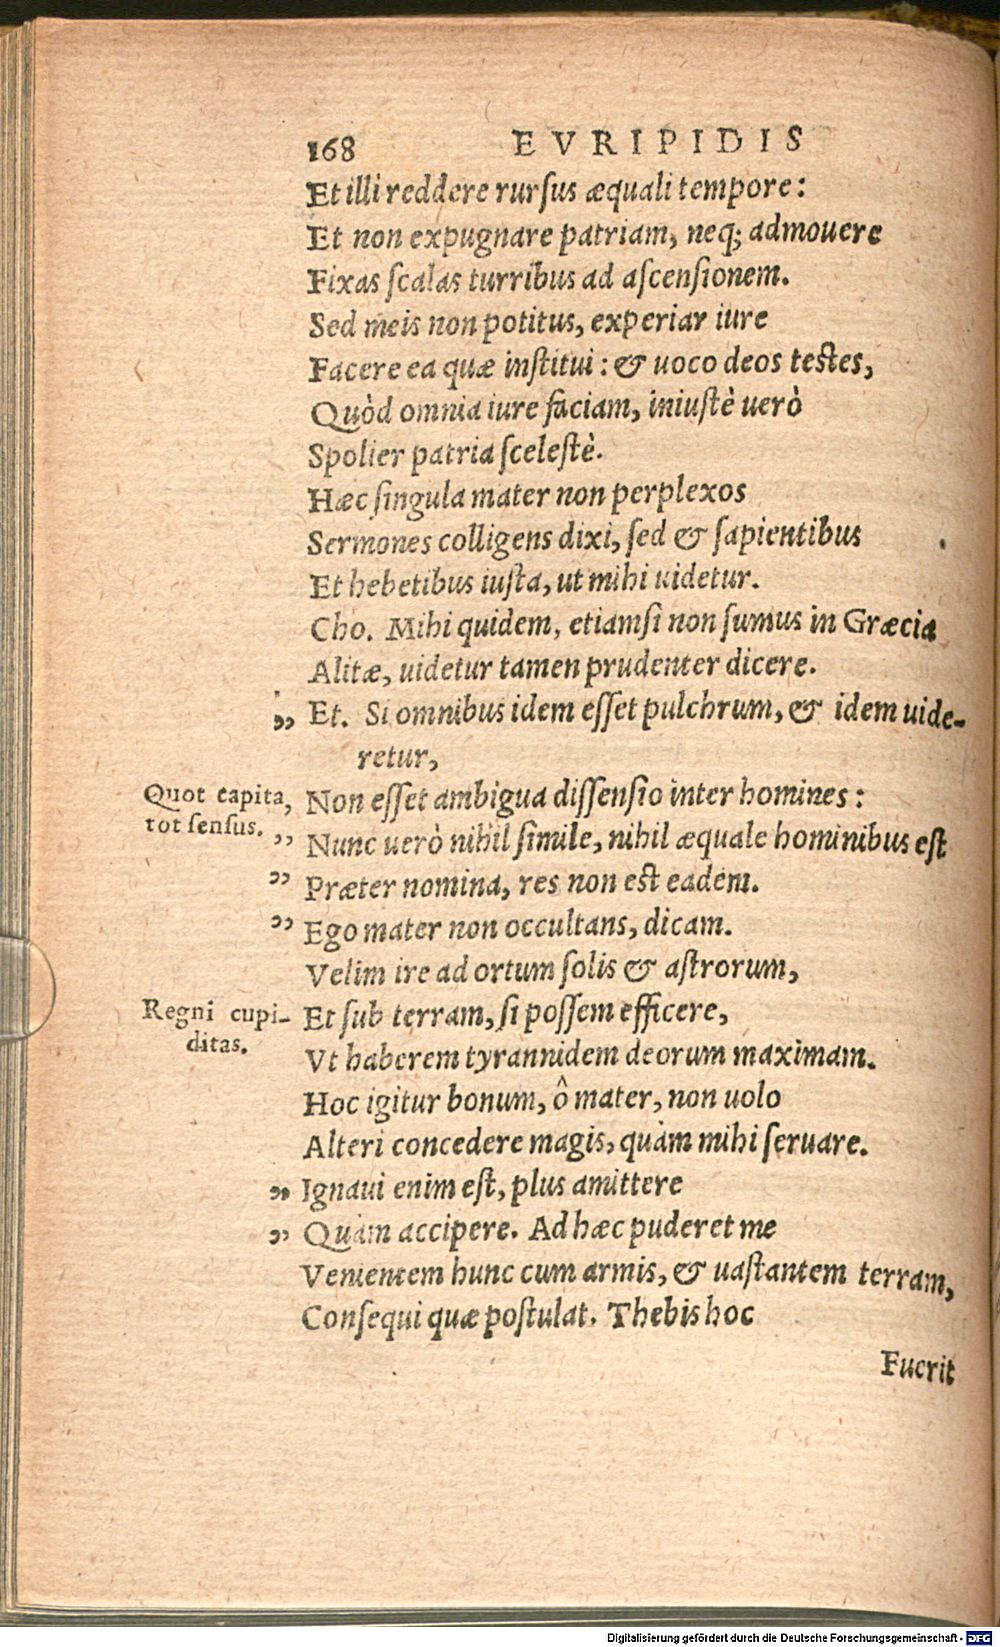 168 EVRIPIDIS
Et illi reddere rurſus æquali tempore:
Et non expugnare patriam, neq; admouere
Fixas ſcalas turribus ad aſcenſionem.
Sed meis non potitus, experiar iure
Facere ea quæ inſtitui: & uoco deos teſtes,
Quòd omnia iure faciam, iniuſtè uerò
Spolier patria ſceleſtè.
Hæc ſingula mater non perplexos
Sermones colligens dixi, ſed & ſapientibus
Et hebetibus iuſta, ut mihi uidetur.
Cho. Mihi quidem, etiamſi non ſumus in Græcia
Alitæ, uidetur tamen prudenter dicere.
„ Et. Si omnibus idem eſſet pulchrum, & idem uide-
retur,
Quot capita,
tot ſenſus.
Non eſſet ambigua diſſenſio inter homines:
„ Nunc uerò nihil ſimile, nihil æquale hominibus eſt
„ Præter nomina, res non eſt eadem.
„ Ego mater non occultans, dicam.
Velim ire ad ortum ſolis & aſtrorum,
Regni cupi-
ditas.
Et ſub terram, ſi poſſem efficere,
Vt haberem tyrannidem deorum maximam.
Hoc igitur bonum, ô mater, non uolo
Alteri concedere magis, quàm mihi ſeruare.
„ Ignaui enim eſt, plus amittere
„ Quàm accipere. Ad hæc puderet me
Venientem hunc cum armis, & uaſtantem terram,
Conſequi quæ poſtulat. Thebis hoc
Fuerit
Digitalisierung gefördert durch die Deutsche Forschungsgemeinschaft - DFG